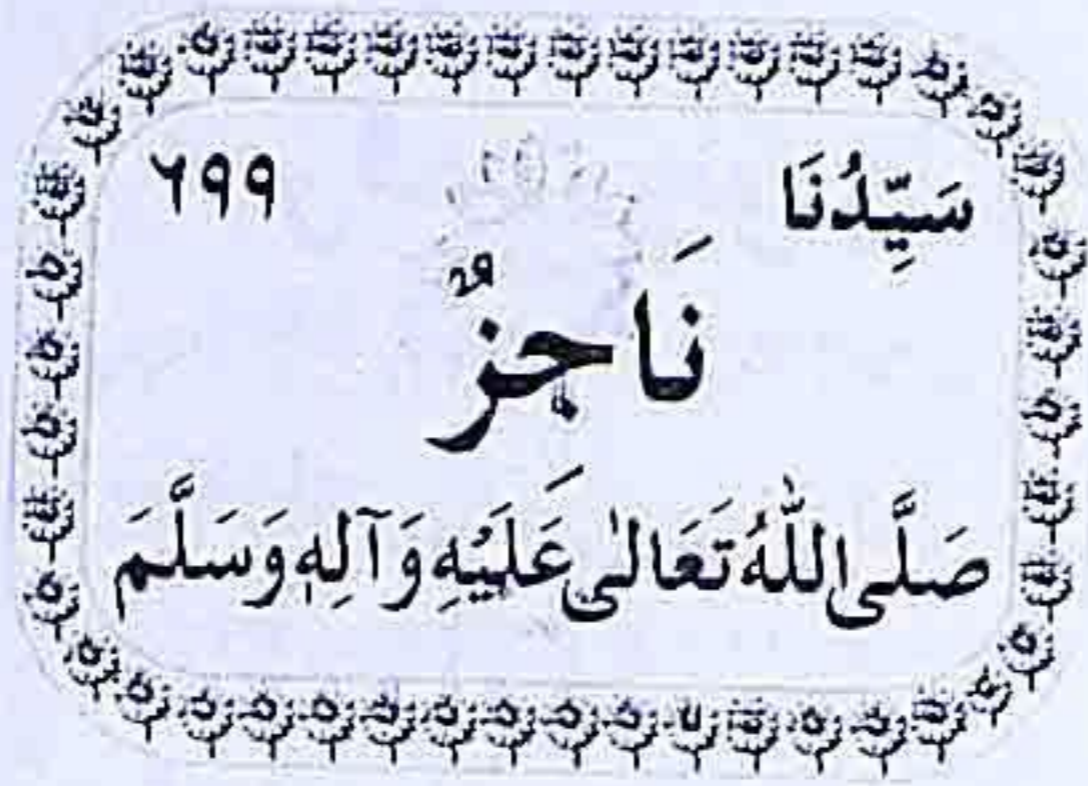 سَيِّدُنَا ٦٩٩
نَاجِزٌ
صَلَّى اللّٰهُ تَعَالٰى عَلَيْهِ وَآلِهٖ وَسَلَّمَ